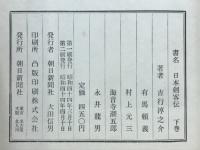 書名 日本剣客伝 下巻
著者 吉行淳之介
有馬頼義
村上元三
海音寺潮五郎
永井龍男
定価 四五〇円
第一刷発行 昭和四十三年
第二刷発行 昭和四十四年四月十日
発行者 大田信男
発行所 朝日新聞社
印刷所 凸版印刷株式会社
発行所 朝日新聞社